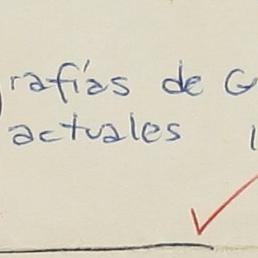 rafías de G
actuales